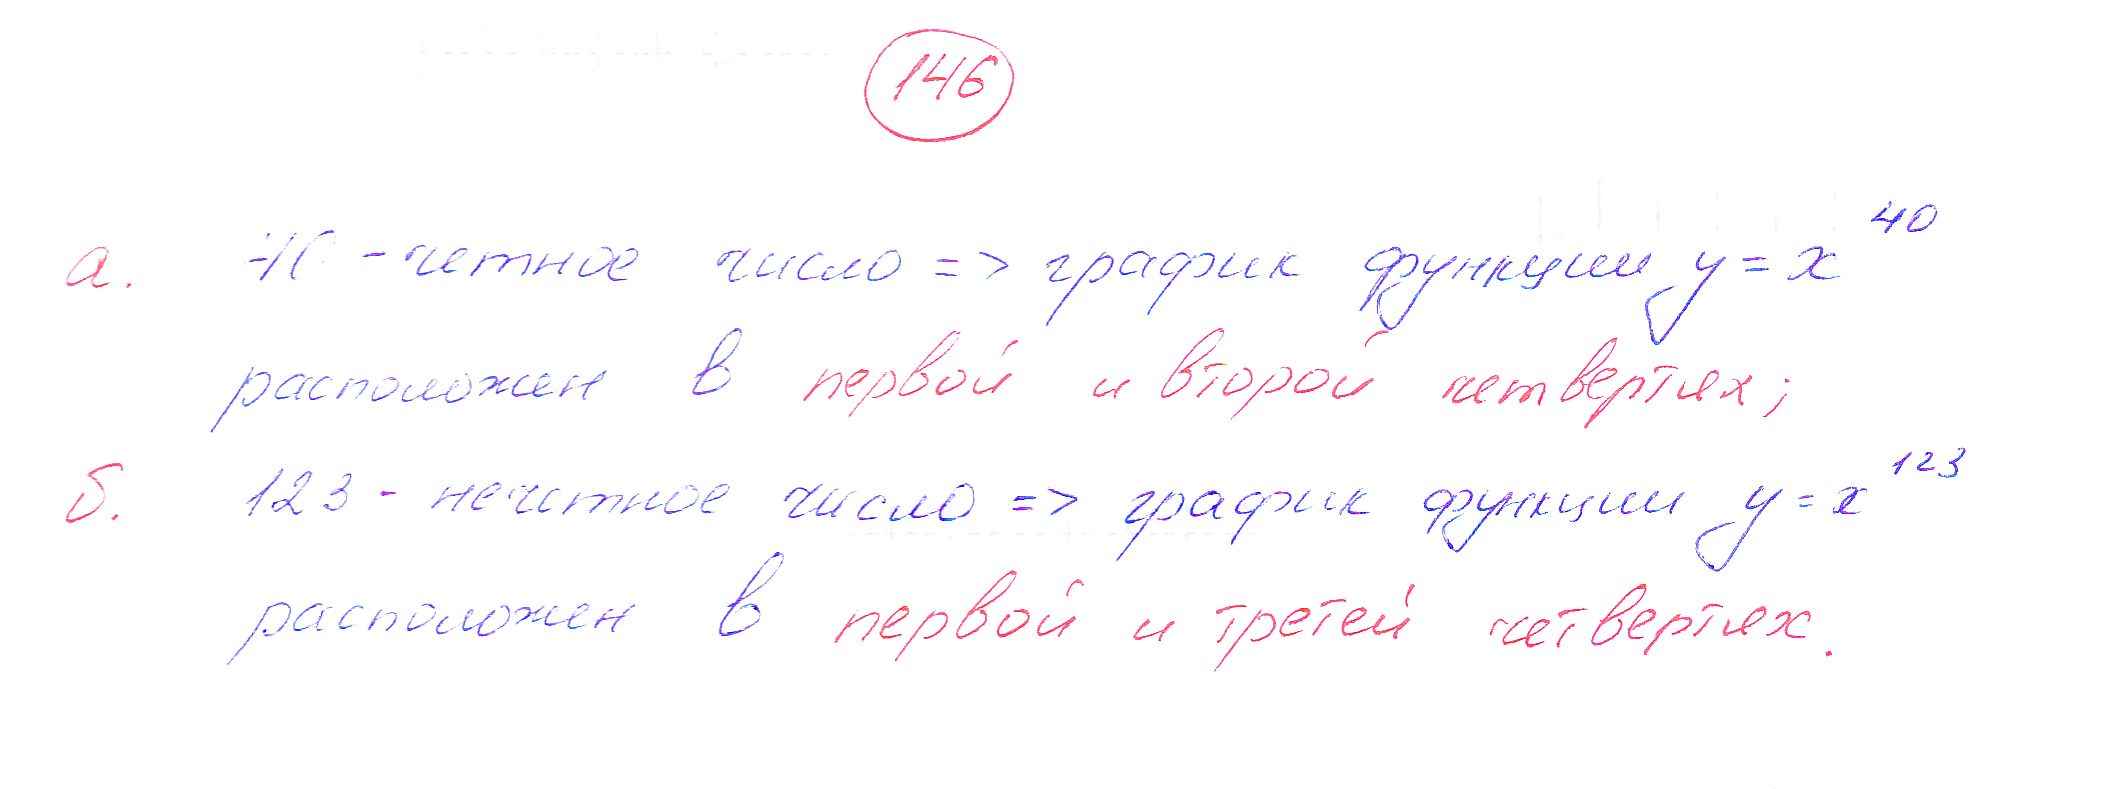 146
а. - четное число => график функции y = x^40
расположен в первой и второй четвертях;
б. 123 - нечетное число => график функции y = x^123
расположен в первой и третей четвертях.